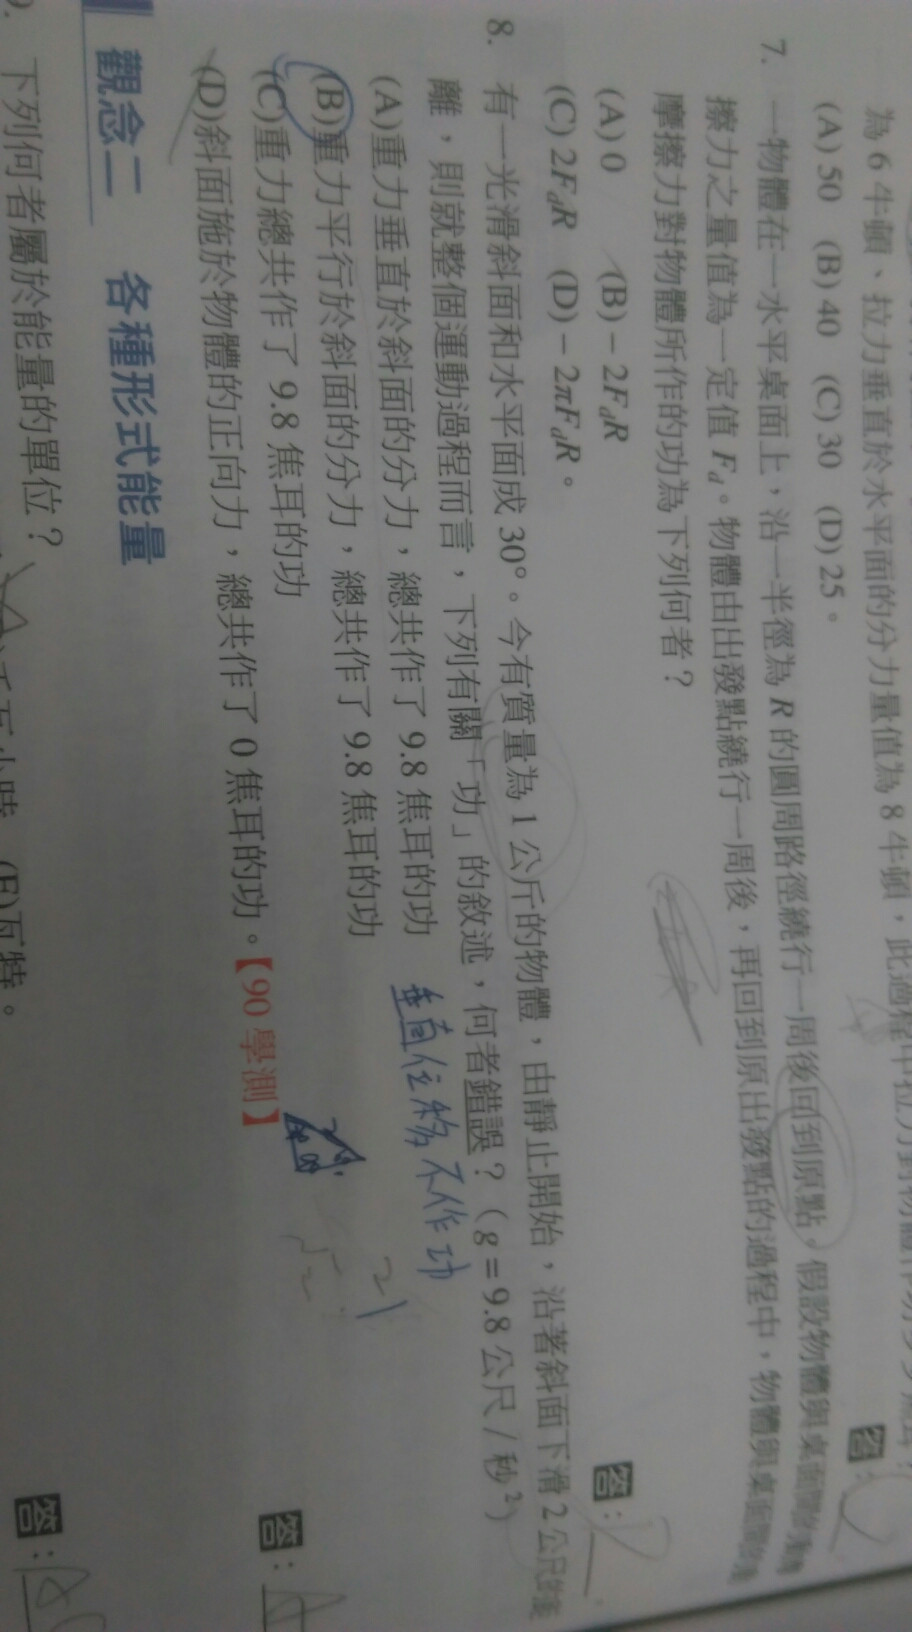 為 6 牛頓、拉力垂直於水平面的分力量值為 8 牛頓,此過程中拉力對物體作功多少焦耳?
(A) 50 (B) 40 (C) 30 (D) 25。
答:C
7. 一物體在一水平桌面上,沿一半徑為 R 的圓周路徑繞行一周後回到原點。假設物體與桌面間的摩
擦力之量值為一定值 Fd。物體由出發點繞行一周後,再回到原出發點的過程中,物體與桌面間的
摩擦力對物體所作的功為下列何者?
(A) 0 (B) -2FdR
(C) 2FdR (D) -2πFdR。
答:D
8. 有一光滑斜面和水平面成 30°。今有質量為 1 公斤的物體,由靜止開始,沿著斜面下滑 2 公尺的距
離,則就整個運動過程而言,下列有關「功」的敘述,何者錯誤?(g = 9.8 公尺/秒²)
(A)重力垂直於斜面的分力,總共作了 9.8 焦耳的功
垂直位移不作功
(B)重力平行於斜面的分力,總共作了 9.8 焦耳的功
(C)重力總共作了 9.8 焦耳的功
(D)斜面施於物體的正向力,總共作了 0 焦耳的功。【90 學測】
答:A
觀念二 各種形式能量
9. 下列何者屬於能量的單位?
答: